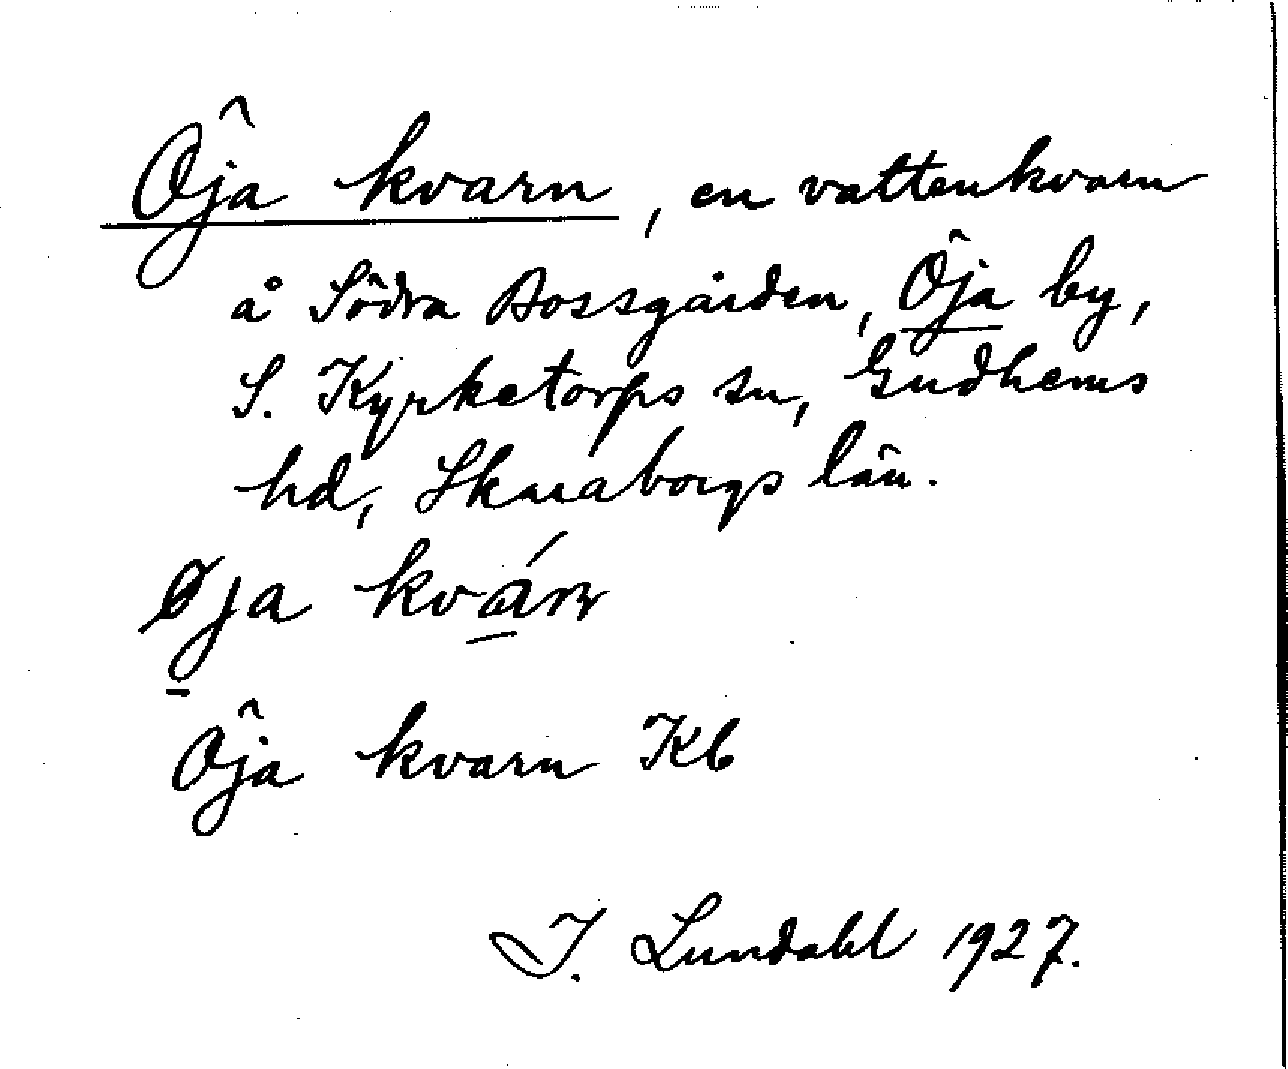 Öja kvarn, en vattenkvarn
å Södra Bossgården, Öja by,
S. Kyrketorps sn, Gudhems
hd, Skaraborgs län.
øja kvárn
Öja kvarn Kb
I. Lundahl 1927.